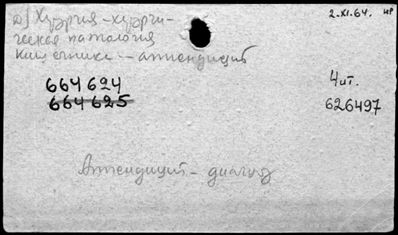 2.XI.64. нр
д) Хирургия – хирурги-
ческая патология
Кишечника – аппендицит
664624
664625
4 шт.
626497
Аппендицит – диагноз